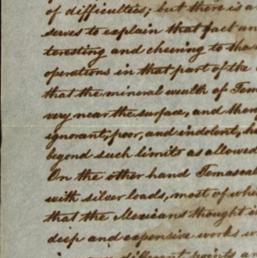 of difficulties; but there is a
serves to explain that fact an
teresting and cheering to tho
operations in that part of the
that the mineral wealth of Tem
very near the surface, and then
ignorant, poor, and indolent, ha
beyond such limits as allowed
On the other hand Temascal
with silver loads, most of whi
that the Mexicans thought i
deep and expensive works w
different points an